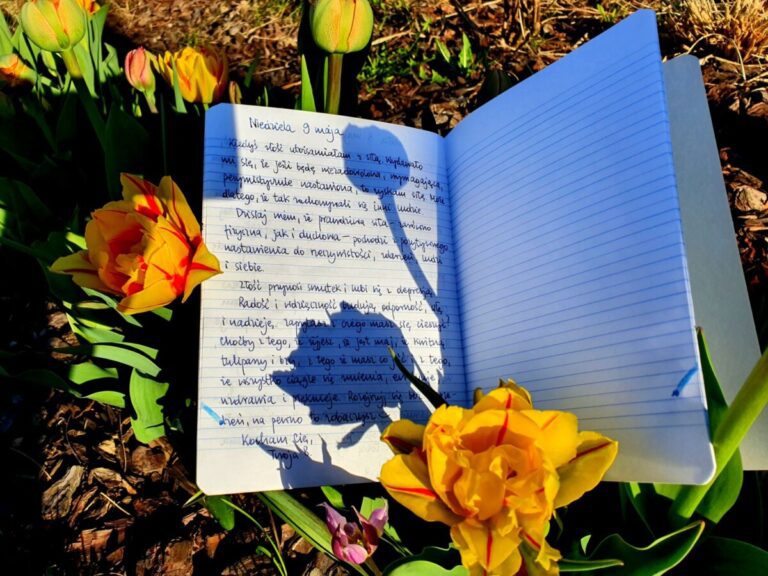 Niedziela 9 maja
Kiedyś złość utożsamiałam z siłą. Wydawało
mi się, że jeśli będę niezadowolona, wymagająca,
pesymistycznie nastawiona, to zyskam siłę. Może
dlatego, że tak zachowywali się inni ludzie.
Dzisiaj wiem, że prawdziwa siła - zarówno
fizyczna, jak i duchowa - pochodzi z pozytywnego
nastawienia do rzeczywistości, zdarzeń, ludzi
i siebie.
Złość przynosi smutek i lubi się z depresją.
Radość i wdzięczność budują odporność, siłę
i nadzieję. z czego masz się cieszyć?
Choćby z tego, że żyjesz, że jest maj, że kwitną
tulipany i bzy, z tego że masz co jeść i z tego,
że wszystko ciągle się zmienia,
uzdrawia i Rozejrzyj się
dzień, na pewno to zobaczysz
Kocham Cię,
Twoja B.